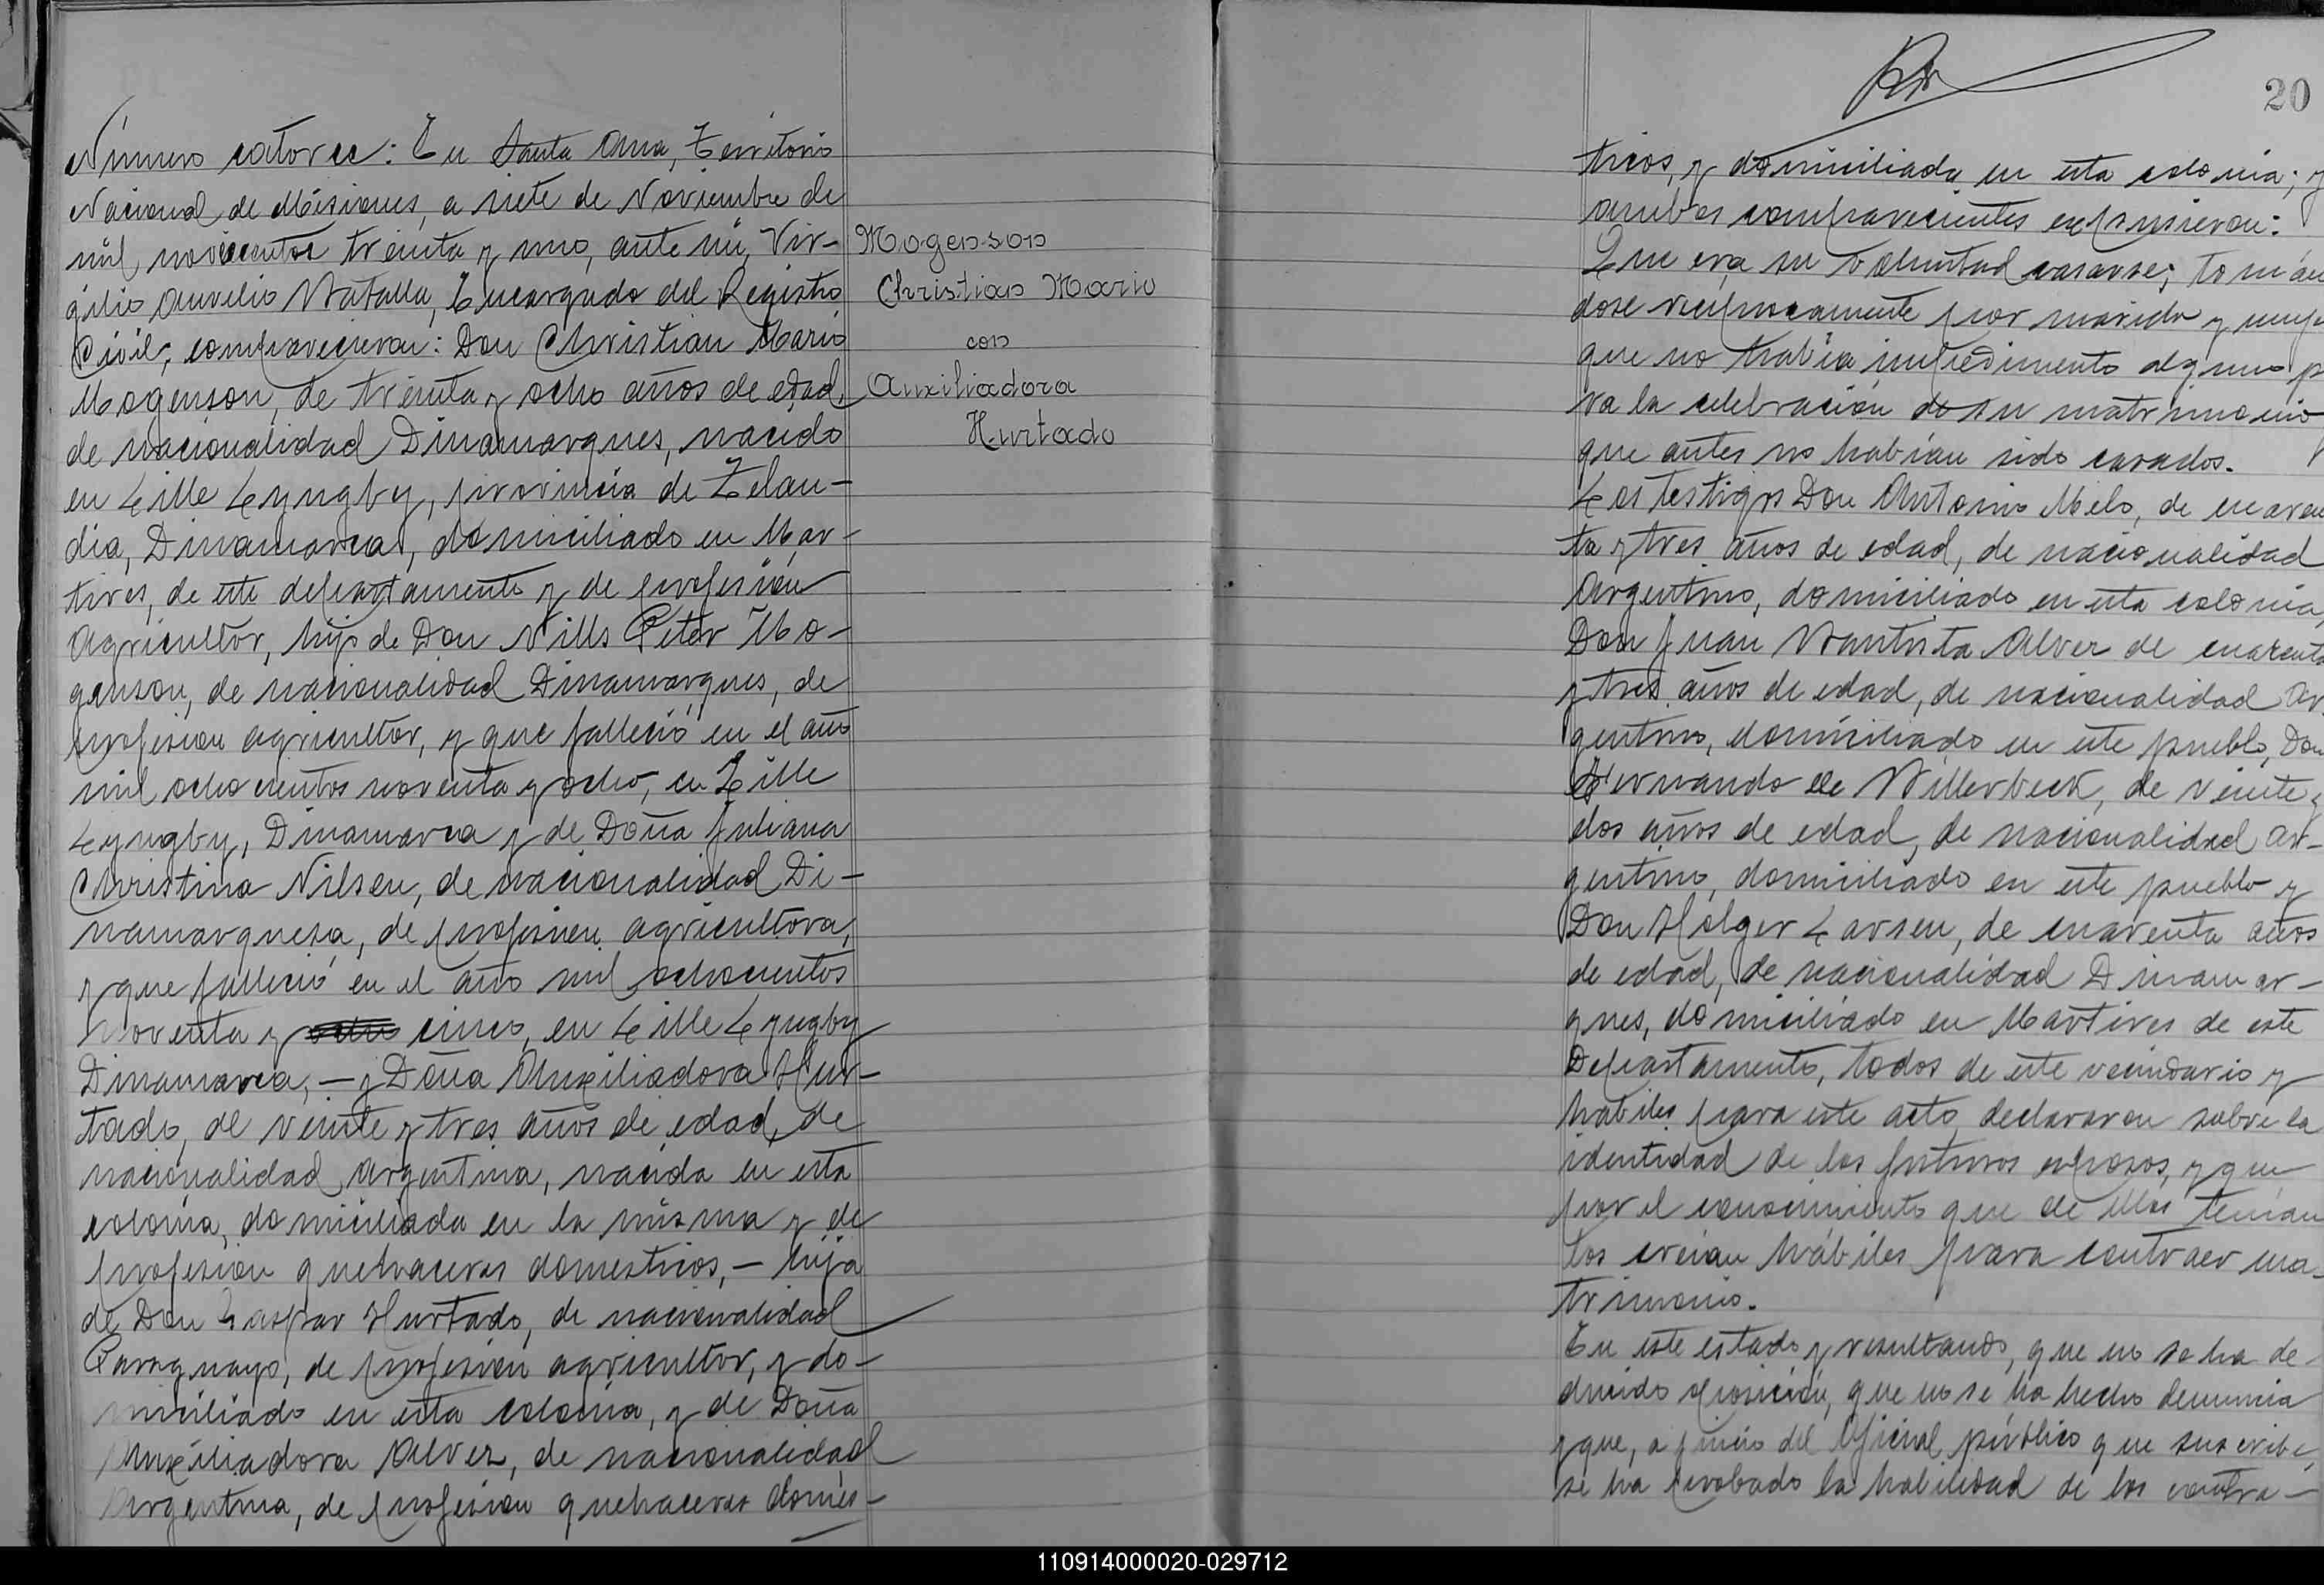 Número catorce: En Santa Ana, Territorio
Nacional de Misiones, a siete de Noviembre de
mil novecientos treinta y uno, ante mí, Vir-
gilio Aurelio Batalla, Encargado del Registro
Civil; comparecieron: Don Christian Mario
Mogenson, de treinta y ocho años de edad,
de nacionalidad Dinamarques, nacido
en Lille Lyngby, provincia de Zelan-
dia, Dinamarca, domiciliado en Már-
tires, de este departamento y de profesión
Agricultor, hijo de Don Nills Peter Mo-
genson, de nacionalidad Dinamarques, de
profesion agricultor, y que falleció en el año
mil ochocientos noventa y ocho, en Lille
Lyngby, Dinamarca y de Doña Juliana
Christina Nilsen, de nacionalidad Di-
namarquesa, de profesion agricultora,
y que falleció en el año mil ochocientos
noventa y ocho cinco, en Lille Lyngby
Dinamarca, - y Doña Auxiliadora Hur-
tado, de veinte y tres años de edad, de
nacionalidad Argentina, nacida en esta
colonia, domiciliada en la misma y de
profesion quehaceres domesticos, - hija
de Don Gaspar Hurtado, de nacionalidad
Paraguayo, de profesión agricultor, y do-
miciliado en esta colonia, y de Doña
Auxiliadora Alvez, de nacionalidad
Argentina, de profesion quehaceres domes-
Mogenson
Christian Mario
con
Auxiliadora
Hurtado
20
ticos, y domiciliada en esta colonia; y
ambos comparecientes expusieron:
Que era su voluntad casarse; tomán
dose reciprocamente por marido y muje
que no habia impedimento alguno p
ra la celebración de su matrimonio
que antes no habían sido casados.
Los testigos Don Antonio Melo, de cuaren
ta y tres años de edad, de nacionalidad
Argentino, domiciliado en esta colonia,
Don Juan Bautista Alvez de cuarenta
y tres años de edad, de nacionalidad Ar
gentino, domiciliado en este pueblo, Don
Fernando de Villerbeck, de veinte y
dos años de edad, de nacionalidad Ar-
gentino, domiciliado en este pueblo y
Don Holger Larsen, de cuarenta años
de edad, de nacionalidad Dinamar-
ques, domiciliado en Martires de este
Departamento, todos de este vecindario y
habiles para este acto, declararon sobre la
identidad de los futuros esposos, y que
por el conocimiento que de ellos tenían
los creian hábiles para contraer ma-
trimonio.
En este estado y resultando, que no se ha de-
ducido oposición, que no se ha hecho denuncia
y que, a juicio del Oficial público que suscribe,
se ha probado la habilidad de los contra-
110914000020-029712